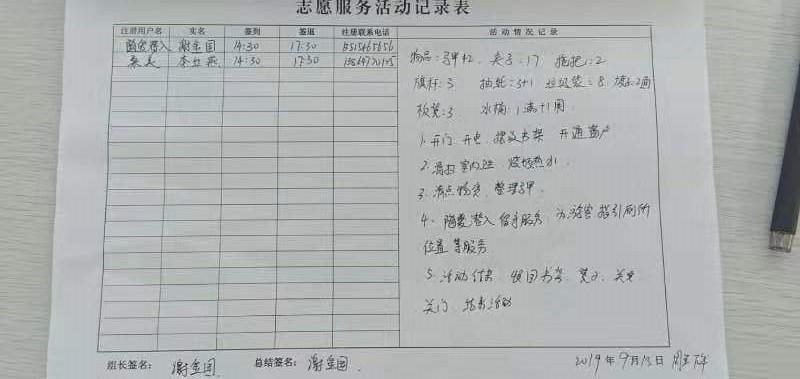 志愿服务活动记录表
注册用户名 实名 签到 签退 注册联系电话 活动情况记录
谢金国 14:30 17:30
李 燕 14:30 17:30
物品:马甲12 夹子:17 拖把:2
旗杆:3 垃圾袋:8
板凳:3 水桶:1满+1周
1.开门 开电 摆放书架 开通窗户
2.清扫室内卫 烧好热水
3.清点物资 整理马甲
4. 潜入 值守服务 为游客指引厕所
位置等服务
5.活动结束 收回书 关电
关门 结束活动
组长签名: 谢金国 总结签名: 谢金国
2019年9月13日 周五 下午